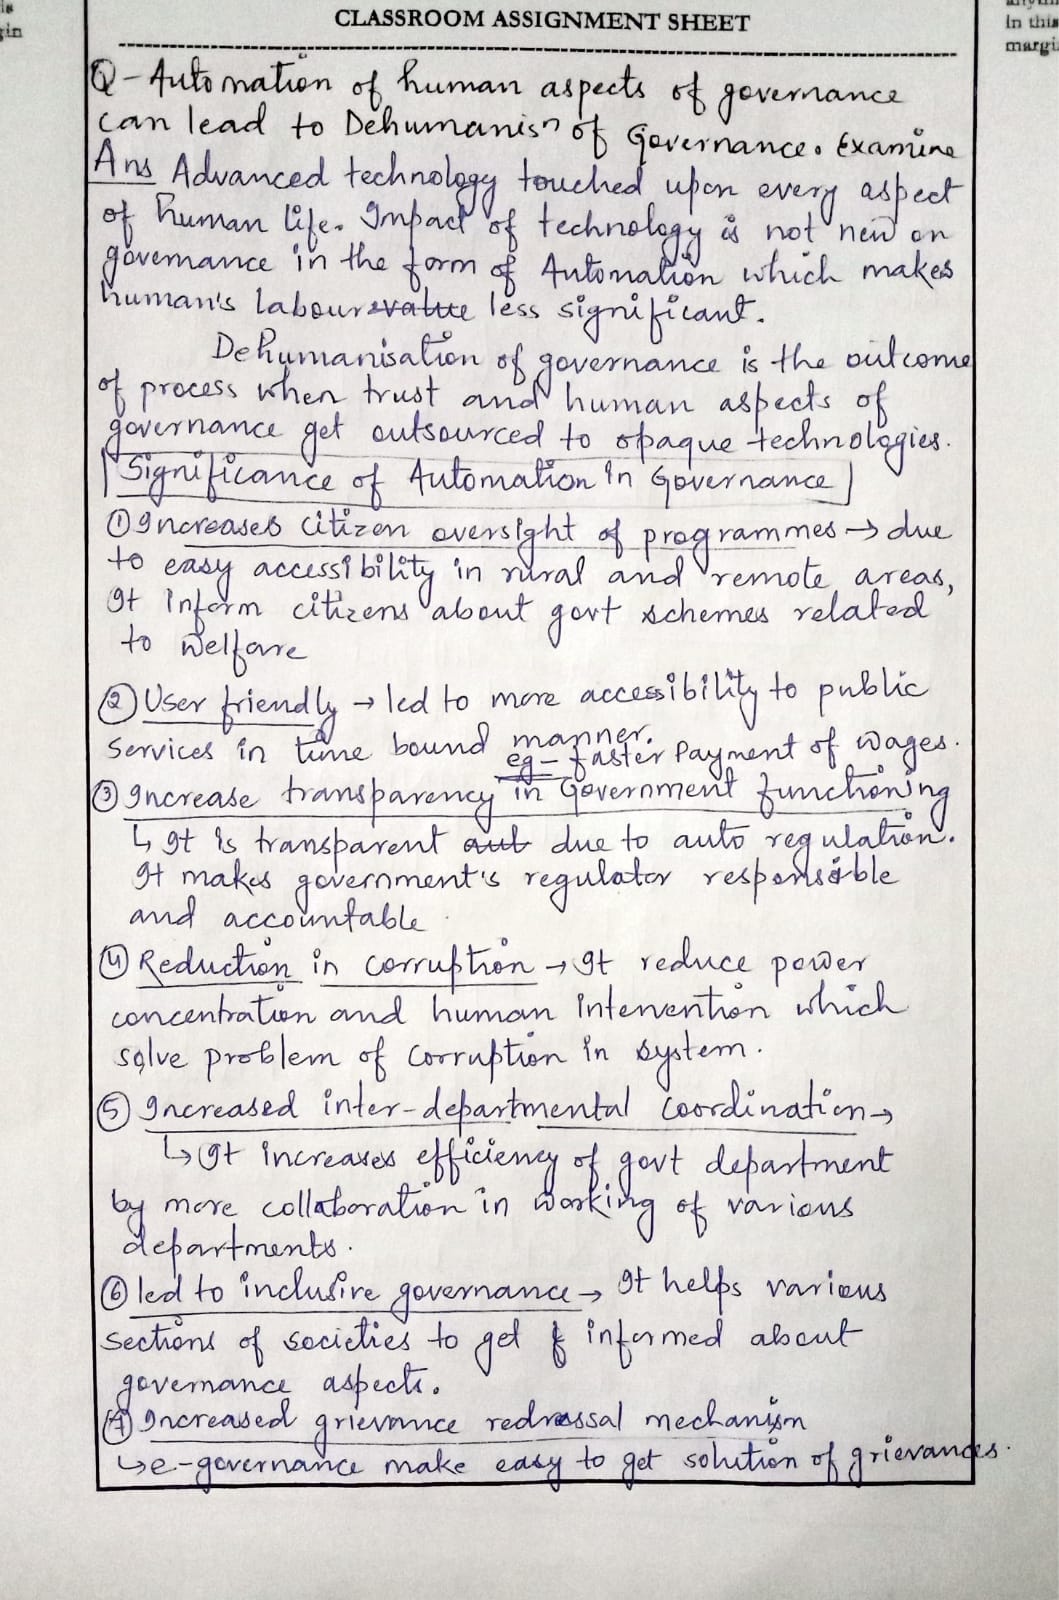 is
gin
CLASSROOM ASSIGNMENT SHEET
in this
margi
Q - Automation of human aspects of governance
can lead to Dehumanisn of Governance. Examine
Ans Advanced technology touched upon every aspect
of human life. Impact of technology is not new on
governance in the form of Automation which makes
human's labour value less significant.
Dehumanisation of governance is the outcome
of process when trust and human aspects of
governance get outsourced to opaque technologies.
Significance of Automation in Governance
① Increases citizen oversight of programmes → due
to easy accessibility in rural and remote areas,
It inform citizens about govt schemes related
to welfare
② User friendly → led to more accessibility to public
services in time bound manner.
eg - faster Payment of wages.
③ Increase transparency in Government functioning
↳ It is transparent aut due to auto regulation.
It makes government's regulator responsible
and accountable
④ Reduction in corruption → It reduce power
concentration and human intervention which
solve problem of corruption in system.
⑤ Increased inter-departmental coordination →
↳ It increases efficiency of govt department
by more collaboration in working of various
departments.
⑥ led to inclusive governance → It helps various
sections of societies to get informed about
governance aspects.
⑦ Increased grievance redressal mechanism
↳ e-governance make easy to get solution of grievances.